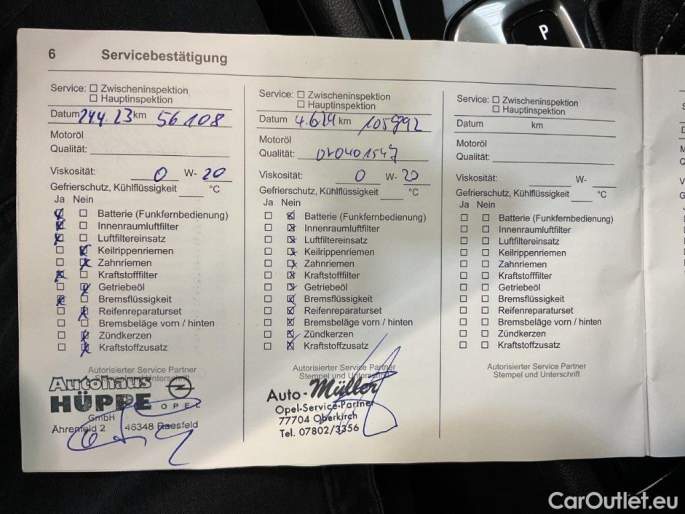 P
6 Servicebestätigung
Service: Zwischeninspektion
Hauptinspektion
Datum 24.4.23 km 56108
Motoröl
Qualität:
Viskosität: 0 W- 20
Gefrierschutz, Kühlflüssigkeit °C
Ja Nein
Batterie (Funkfernbedienung)
Innenraumluftfilter
Luftfiltereinsatz
Keilrippenriemen
Zahnriemen
Kraftstofffilter
Getriebeöl
Bremsflüssigkeit
Reifenreparaturset
Bremsbeläge vorn / hinten
Zündkerzen
Kraftstoffzusatz
Autorisierter Service Partner
Autohaus
HÜPPE OPEL
GmbH
Ahrenfeld 2 46348 Raesfeld
Service: Zwischeninspektion
Hauptinspektion
Datum 4.6.24 km 105992
Motoröl
Qualität: OV0401547
Viskosität: 0 W- 20
Gefrierschutz, Kühlflüssigkeit °C
Ja Nein
Batterie (Funkfernbedienung)
Innenraumluftfilter
Luftfiltereinsatz
Keilrippenriemen
Zahnriemen
Kraftstofffilter
Getriebeöl
Bremsflüssigkeit
Reifenreparaturset
Bremsbeläge vorn / hinten
Zündkerzen
Kraftstoffzusatz
Autorisierter Service Partner
Stempel und Unterschrift
Auto-Müller
Opel-Service-Partner
77704 Oberkirch
Tel. 07802/3356
Service: Zwischeninspektion
Hauptinspektion
Datum km
Motoröl
Qualität:
Viskosität: W-
Gefrierschutz, Kühlflüssigkeit °C
Ja Nein
Batterie (Funkfernbedienung)
Innenraumluftfilter
Luftfiltereinsatz
Keilrippenriemen
Zahnriemen
Kraftstofffilter
Getriebeöl
Bremsflüssigkeit
Reifenreparaturset
Bremsbeläge vorn / hinten
Zündkerzen
Kraftstoffzusatz
Autorisierter Service Partner
Stempel und Unterschrift
CarOutlet.eu